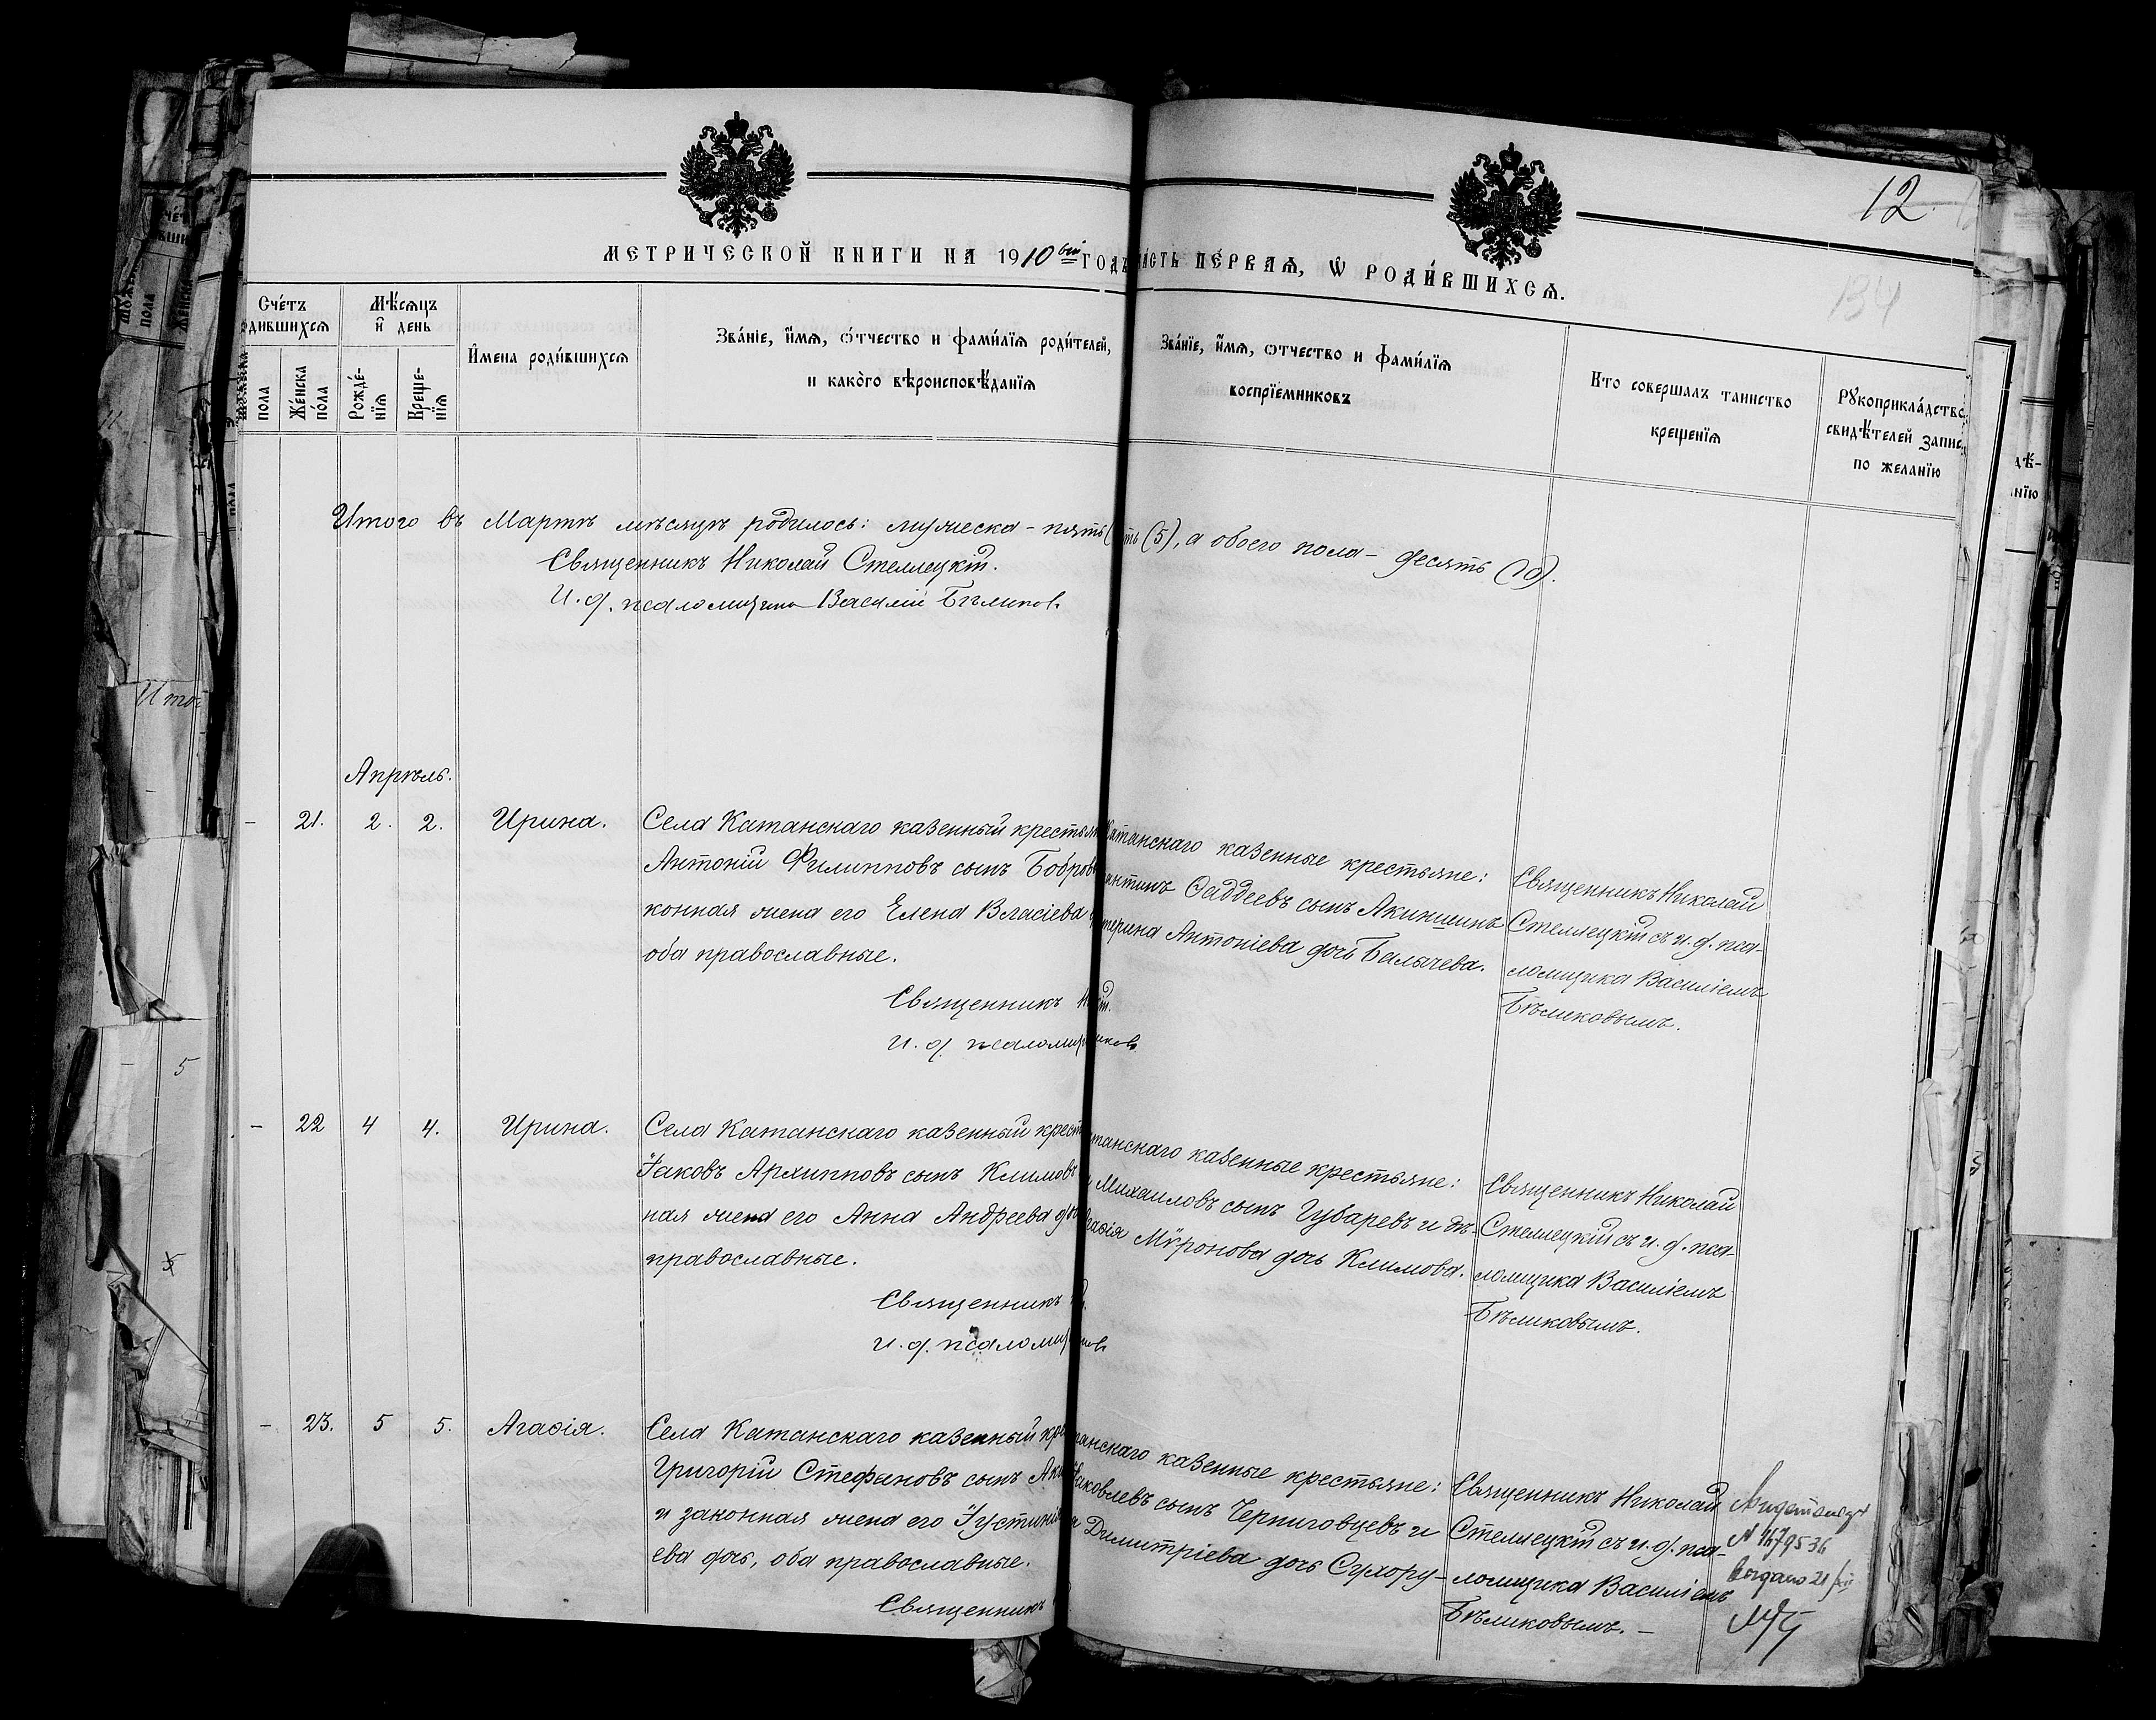 12.
134
МЕТРИЧЕСКОЙ КНИГИ НА 1910ый ГОДЪ
ЧАСТЬ ПЕ́РВАЯ, Ѡ РОДИ́ВШИХСЯ.
Сче́тъ
родившихся
Мѣ́сяцъ
и҆ день
пола
Же́нска
по́ла
Рожде́-
нїя
Креще-
нїя
И҆мена роди́вшихся
Зва́нїе, и҆́мя, ѻ҆́тчество и фами́лїя роди́телей,
и како́го вѣроисповѣ́данїя
Зва́нїе, и҆́мя, ѻтчество и фами́лїя
воспрїе́мниковъ
Кто совершалъ таинство
крещенїя
Рꙋкоприкла́дство
свидѣ́телей запис
по желанїю
Итого въ Мартѣ мѣсяцѣ родилось: мужеска - пять
(5), а обоего пола - десять (10).
Священникъ Николай Стеллецкій.
И. д. псаломщика Василій Бѣликов.
Апрѣль.
- 21. 2. 2. Ирина.
Села Катанскаго казенный крестьян
Антоній Филипповъ сынъ Бобров
конная жена его Елена Власіева
оба православные.
Священникъ
И. д. псаломщ
Катанскаго казенные крестьяне:
антинъ Ѳаддеевъ сынъ Акиншинъ
терина Антоніева дочь Балычева.
Священникъ Николай
Стеллецкій съ и. д. пса-
ломщика Василіемъ
Бѣликовымъ.
- 22 4 4. Ирина.
Села Катанскаго казенный крест
Іаковъ Архипповъ сынъ Климовъ
ная жена его Анна Андреева до
православные.
Священникъ
И. д. псаломщ
танскаго казенные крестьяне:
Михаиловъ сынъ Губаревъ и дѣ-
гаѳія Мѵронова дочь Климова.
Священникъ Николай
Стеллецкій съ и. д. пса-
ломщика Василіемъ
Бѣликовымъ.
- 23. 5 5. Агаѳія.
Села Катанскаго казенный кре
Григорій Стефановъ сынъ Аки
и законная жена его Іустинія
ева дочь, оба православные.
Священникъ
танскаго казенные крестьяне:
Іаковлевъ сынъ Черниговцевъ и
Димитріева дочь Сухору-
Священникъ Николай
Стеллецкій съ и. д. пса-
ломщика Василіемъ
Бѣликовымъ. -